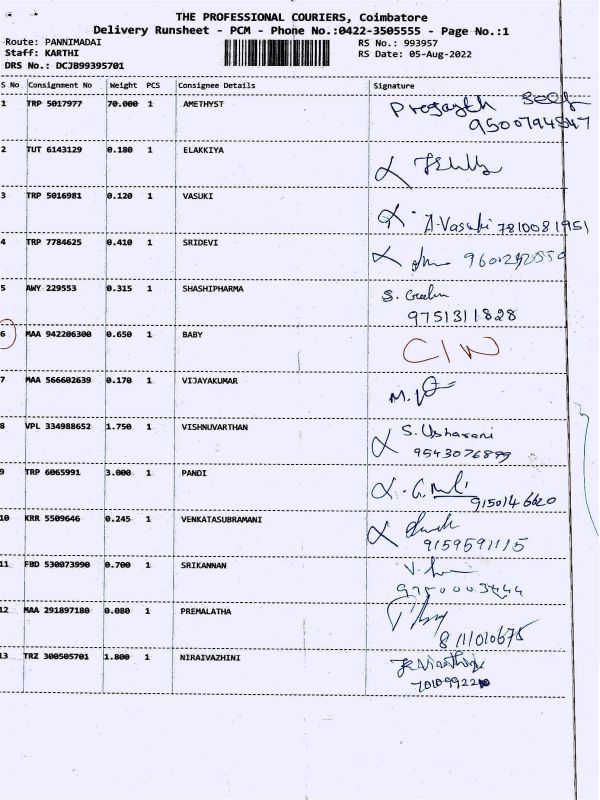 THE PROFESSIONAL COURIERS, Coimbatore
Delivery Runsheet - PCM - Phone No.:0422-3505555 - Page No.:1
Route: PANNIMADAI RS No.: 993957
Staff: KARTHI RS Date: 05-Aug-2022
DRS No.: DCJB99395701
S No Consignment No Weight PCS Consignee Details Signature
1 TRP 5017977 70.000 1 AMETHYST
2 TUT 6143129 0.180 1 ELAKKIYA
3 TRP 5016981 0.120 1 VASUKI
A.Vasuki 7810081951
4 TRP 7784625 0.410 1 SRIDEVI
5 AWY 229553 0.315 1 SHASHIPHARMA S.
9751311828
6 MAA 942206300 0.650 1 BABY C/W
7 MAA 566602639 0.170 1 VIJAYAKUMAR M.
8 VPL 334988652 1.750 1 VISHNUVARTHAN S. Usharani
9543076899
9 TRP 6065991 3.000 1 PANDI
9150146620
10 KRR 5509646 0.245 1 VENKATASUBRAMANI
9159591115
11 FBD 530073990 0.700 1 SRIKANNAN V.
9750003444
12 MAA 291897180 0.080 1 PREMALATHA
8111010675
13 TRZ 300505701 1.800 1 NIRAIVAZHINI